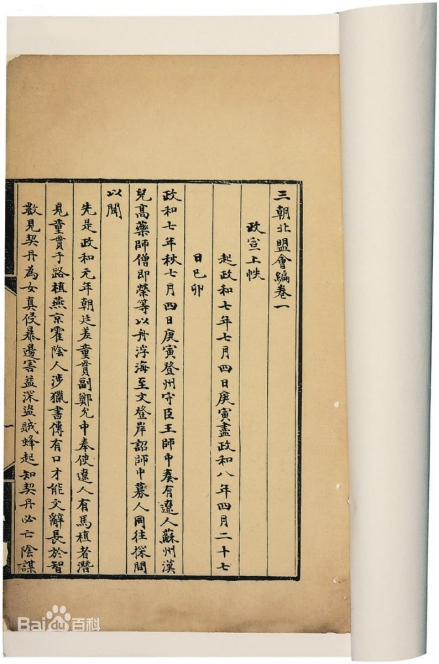 三朝北盟會編卷一
政宣上帙
起政和七年七月四日庚寅盡政和八年四月二十七
日己卯
政和七年秋七月四日庚寅登州守臣王師中奏有遼人蘇州漢
兒高藥師僧郎榮等以舟浮海至文登岸詔師中募人同往探問
以聞
先是政和元年朝廷差童貫副鄭允中奉使遼人有馬植者潛
見童貫于路植燕京霍陰人涉獵書傳有口才能文辭長於智
數見契丹為女真侵暴邊害益深盜賊蜂起知契丹必亡陰謀
Baidu百科